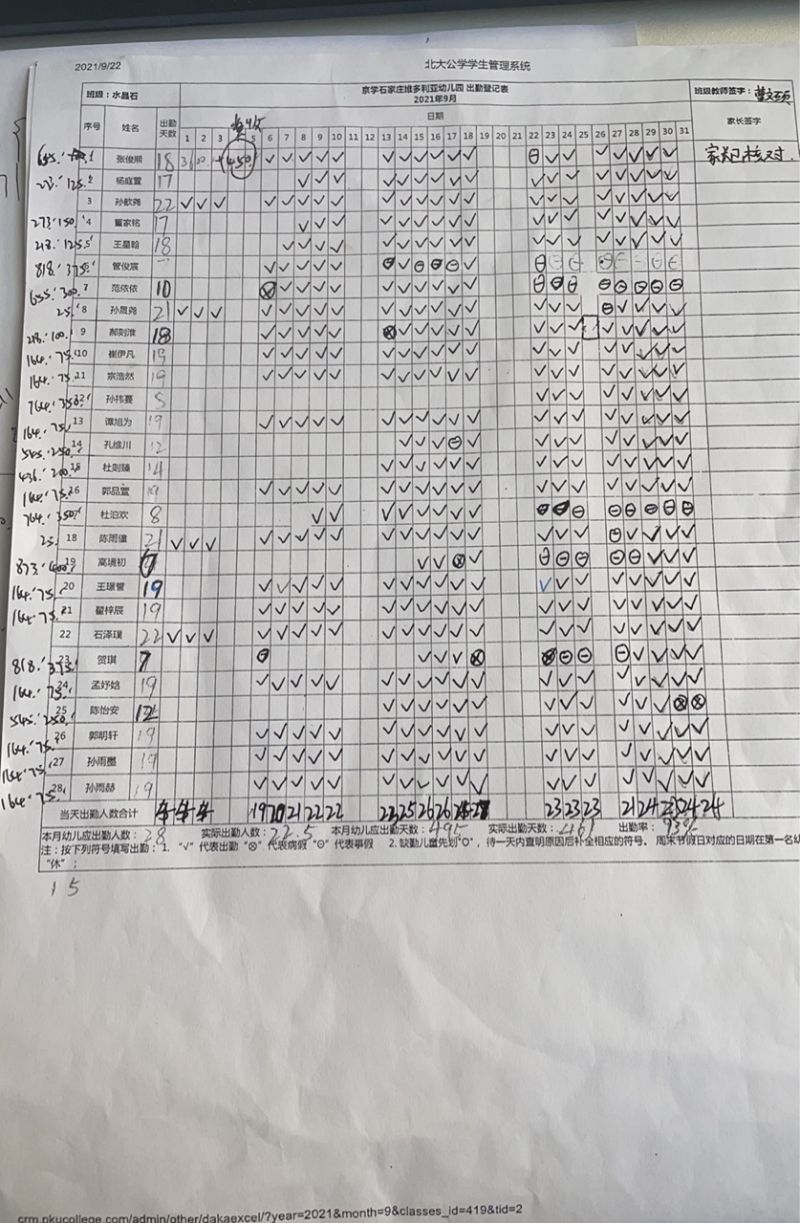 2021/9/22 北大公学学生管理系统
班级：水晶石 京学石家庄维多利亚幼儿园 出勤登记表 班级教师签字：
2021年9月
序号 姓名 出勤天数 日期 家长签字
1 2 3 5 6 7 8 9 10 11 12 13 14 15 16 17 18 19 20 21 22 23 24 25 26 27 28 29 30 31
655. 1 张俊熙 18 450 √ √ √ √ √ √ √ √ √ √ √ ⊖ √ √ √ √ √ √ √ 家长已核对.
125. 2 杨庭萱 17 √ √ √ √ √ √ √ √ √ √ √ √ √ √ √ √ √
3 孙歆尧 22 √ √ √ √ √ √ √ √ √ √ √ √ √ √ √ √ √ √ √ √ √ √
273. 150. 4 董家铭 17 √ √ √ √ √ √ √ √ √ √ √ √ √ √ √ √ √
218. 125. 5 王星翰 18 √ √ √ √ √ √ √ √ √ √ √ √ √ √ √ √ √ √
818. 375. 管俊宸 √ √ √ √ √ √
655. 300. 7 范依依 10 ⊗ √ √ √ √ √ √ √ √ √ √ ⊖ ⊖ ⊖ ⊖ ⊖ ⊖ ⊖ ⊖
25. 8 孙晟尧 21 √ √ √ √ √ √ √ √ √ √ √ √ √ √ √ √ √ ⊖ √ √ √ √
218. 100. 9 郝刻淮 18 √ √ √ √ √ ⊗ √ √ √ √ √ √ √ √ √ √ √ √ √
164. 75. 10 崔伊凡 19 √ √ √ √ √ √ √ √ √ √ √ √ √ √ √ √ √ √ √
164. 75. 11 宗浩然 19 √ √ √ √ √ √ √ √ √ √ √ √ √ √ √ √ √ √ √
764. 350. 孙祎蔓 5 √ √ √ √ √ √ √ √
164. 75. 13 谭旭为 19 √ √ √ √ √ √ √ √ √ √ √ √ √ √ √ √ √ √ √
545. 250. 14 孔维川 12 √ √ √ ⊖ √ √ √ √ √ √ √ √ √
436. 200. 杜则臻 14 √ √ √ √ √ √ √ √ √ √ √ √ √ √
164. 75. 郭品萱 19 √ √ √ √ √ √ √ √ √ √ √ √ √ √ √ √ √ √ √
764. 350. 杜泊欢 8 √ √ √ √ √ √ √ √ ⊖ ⊖ ⊖ ⊖ ⊖ ⊖ ⊖ ⊖
25. 18 陈雨僮 21 √ √ √ √ √ √ √ √ √ √ √ √ √ √ √ √ √ ⊖ √ √ √ √
873. 400. 19 高境初 7 √ √ ⊗ √ ⊖ ⊖ ⊖ ⊖ ⊖ √ √ √
164. 75. 20 王璟誉 19 √ √ √ √ √ √ √ √ √ √ √ √ √ √ √ √ √ √ √
164. 75. 21 翟梓辰 19 √ √ √ √ √ √ √ √ √ √ √ √ √ √ √ √ √ √ √
22 石泽璞 22 √ √ √ √ √ √ √ √ √ √ √ √ √ √ √ √ √ √ √ √ √ √
818. 23 贺琪 7 √ √ √ ⊗ ⊖ ⊖ ⊖ √ √ √ √
164. 75. 24 孟妤晗 19 √ √ √ √ √ √ √ √ √ √ √ √ √ √ √ √ √ √ √
545. 250. 25 陈怡安 12 √ √ √ √ √ √ √ √ √ √ √ √ ⊗ ⊗
164. 75. 26 郭明轩 19 √ √ √ √ √ √ √ √ √ √ √ √ √ √ √ √ √ √ √
164. 75. 27 孙雨墨 19 √ √ √ √ √ √ √ √ √ √ √ √ √ √ √ √ √ √ √
164. 75. 28 孙雨赫 19 √ √ √ √ √ √ √ √ √ √ √ √ √ √ √ √ √ √ √
当天出勤人数合计 19 20 21 22 22 22 25 26 26 23 23 23 21 24 24 24
本月幼儿应出勤人数：28 实际出勤人数：22.5 本月幼儿应出勤天数：495 实际出勤天数：461 出勤率：93%
注：按下列符号填写出勤：1. “√”代表出勤 “⊗”代表病假 “⊙”代表事假 2. 缺勤儿童先划“O”，待一天内查明原因后补全相应的符号。 周末节假日对应的日期在第一名幼
“休”；
15
crm.pkucollege.com/admin/other/dakaexcel/?year=2021&month=9&classes_id=419&tid=2